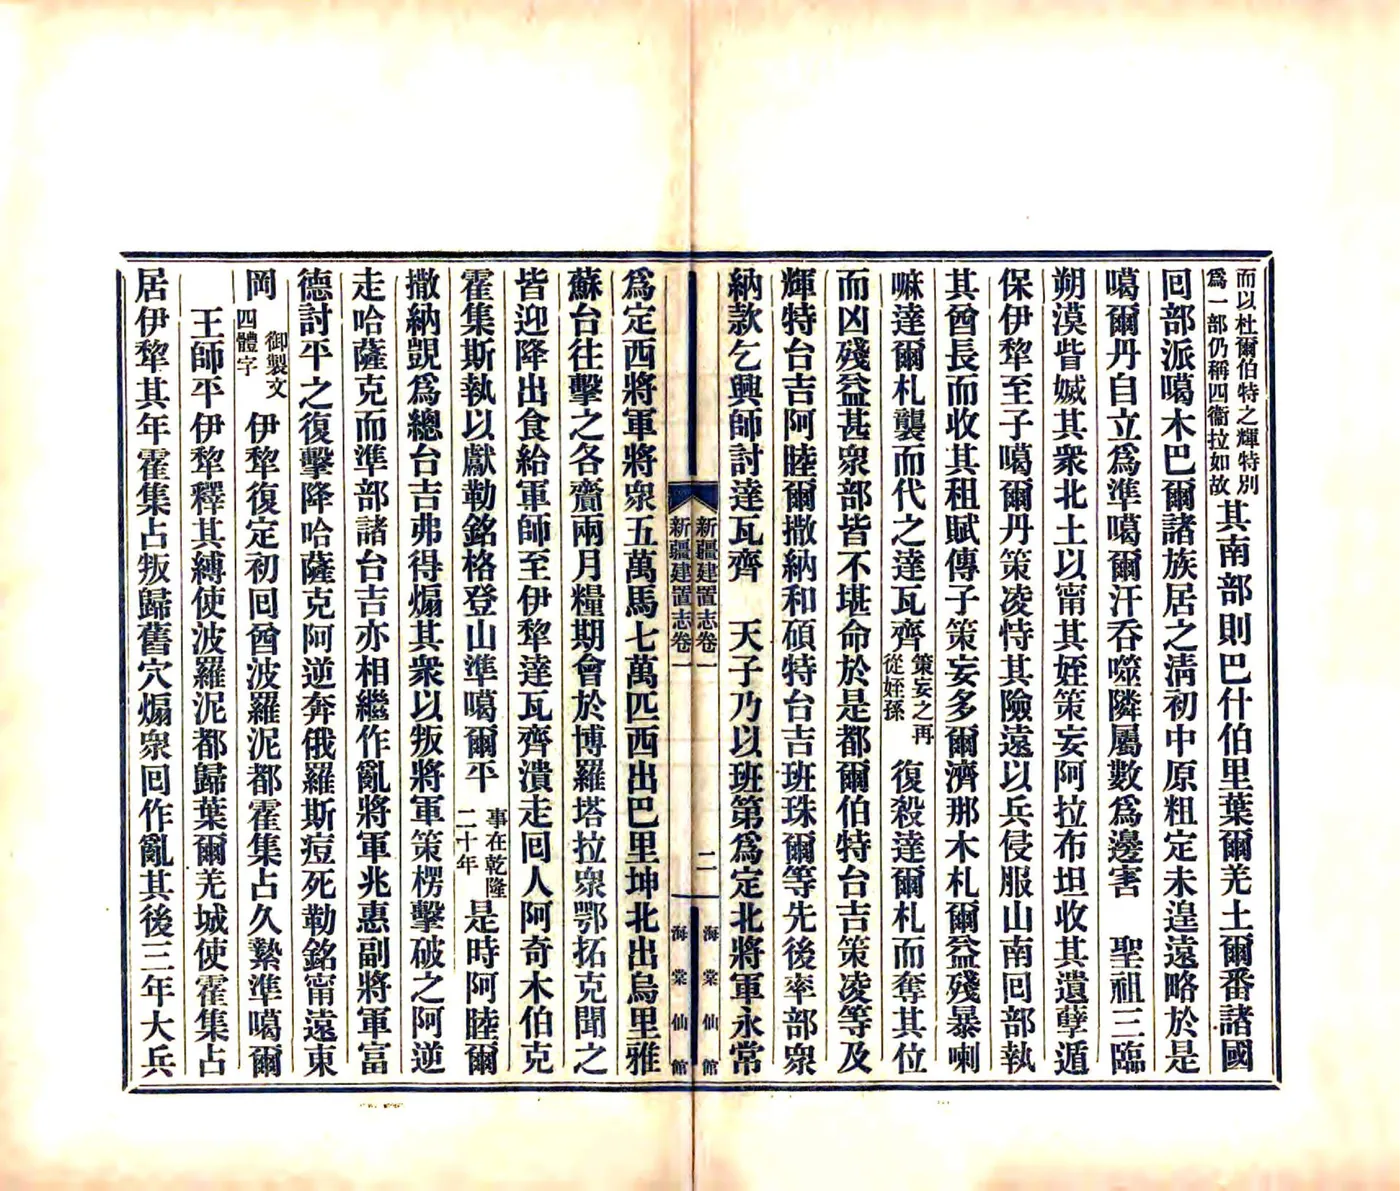 而以杜爾伯特之輝特別爲一部仍稱四衞拉如故其南部則巴什伯里葉爾羌土爾番諸國
回部派噶木巴爾諸族居之淸初中原粗定未遑遠略於是
噶爾丹自立爲準噶爾汗吞噬隣屬數爲邊害　聖祖三臨
朔漠眥㓕其衆北土以甯其姪策妄阿拉布坦收其遺孽遁
保伊犂至子噶爾丹策凌恃其險遠以兵侵服山南回部執
其酋長而收其租賦傳子策妄多爾濟那木札爾益殘暴喇
嘛達爾札襲而代之達瓦齊策妄之再從姪孫復殺達爾札而奪其位
而凶殘益甚衆部皆不堪命於是都爾伯特台吉策凌等及
輝特台吉阿睦爾撒納和碩特台吉班珠爾等先後率部衆
納款乞興師討達瓦齊　天子乃以班第爲定北將軍永常
新疆建置志卷一
二
海棠仙館
新疆建置志卷一
海棠仙館
爲定西將軍將衆五萬馬七萬匹西出巴里坤北出烏里雅
蘇台往擊之各齎兩月糧期會於博羅塔拉衆鄂拓克聞之
皆迎降出食給軍師至伊犂達瓦齊潰走回人阿奇木伯克
霍集斯執以獻勒銘格登山準噶爾平事在乾隆二十年是時阿睦爾
撒納覬爲總台吉弗得煽其衆以叛將軍策楞擊破之阿逆
走哈薩克而準部諸台吉亦相繼作亂將軍兆惠副將軍富
德討平之復擊降哈薩克阿逆奔俄羅斯痘死勒銘甯遠東
岡御製文四體字伊犂復定初回酋波羅泥都霍集占久縶準噶爾
王師平伊犂釋其縛使波羅泥都歸葉爾羌城使霍集占
居伊犂其年霍集占叛歸舊穴煽衆回作亂其後三年大兵